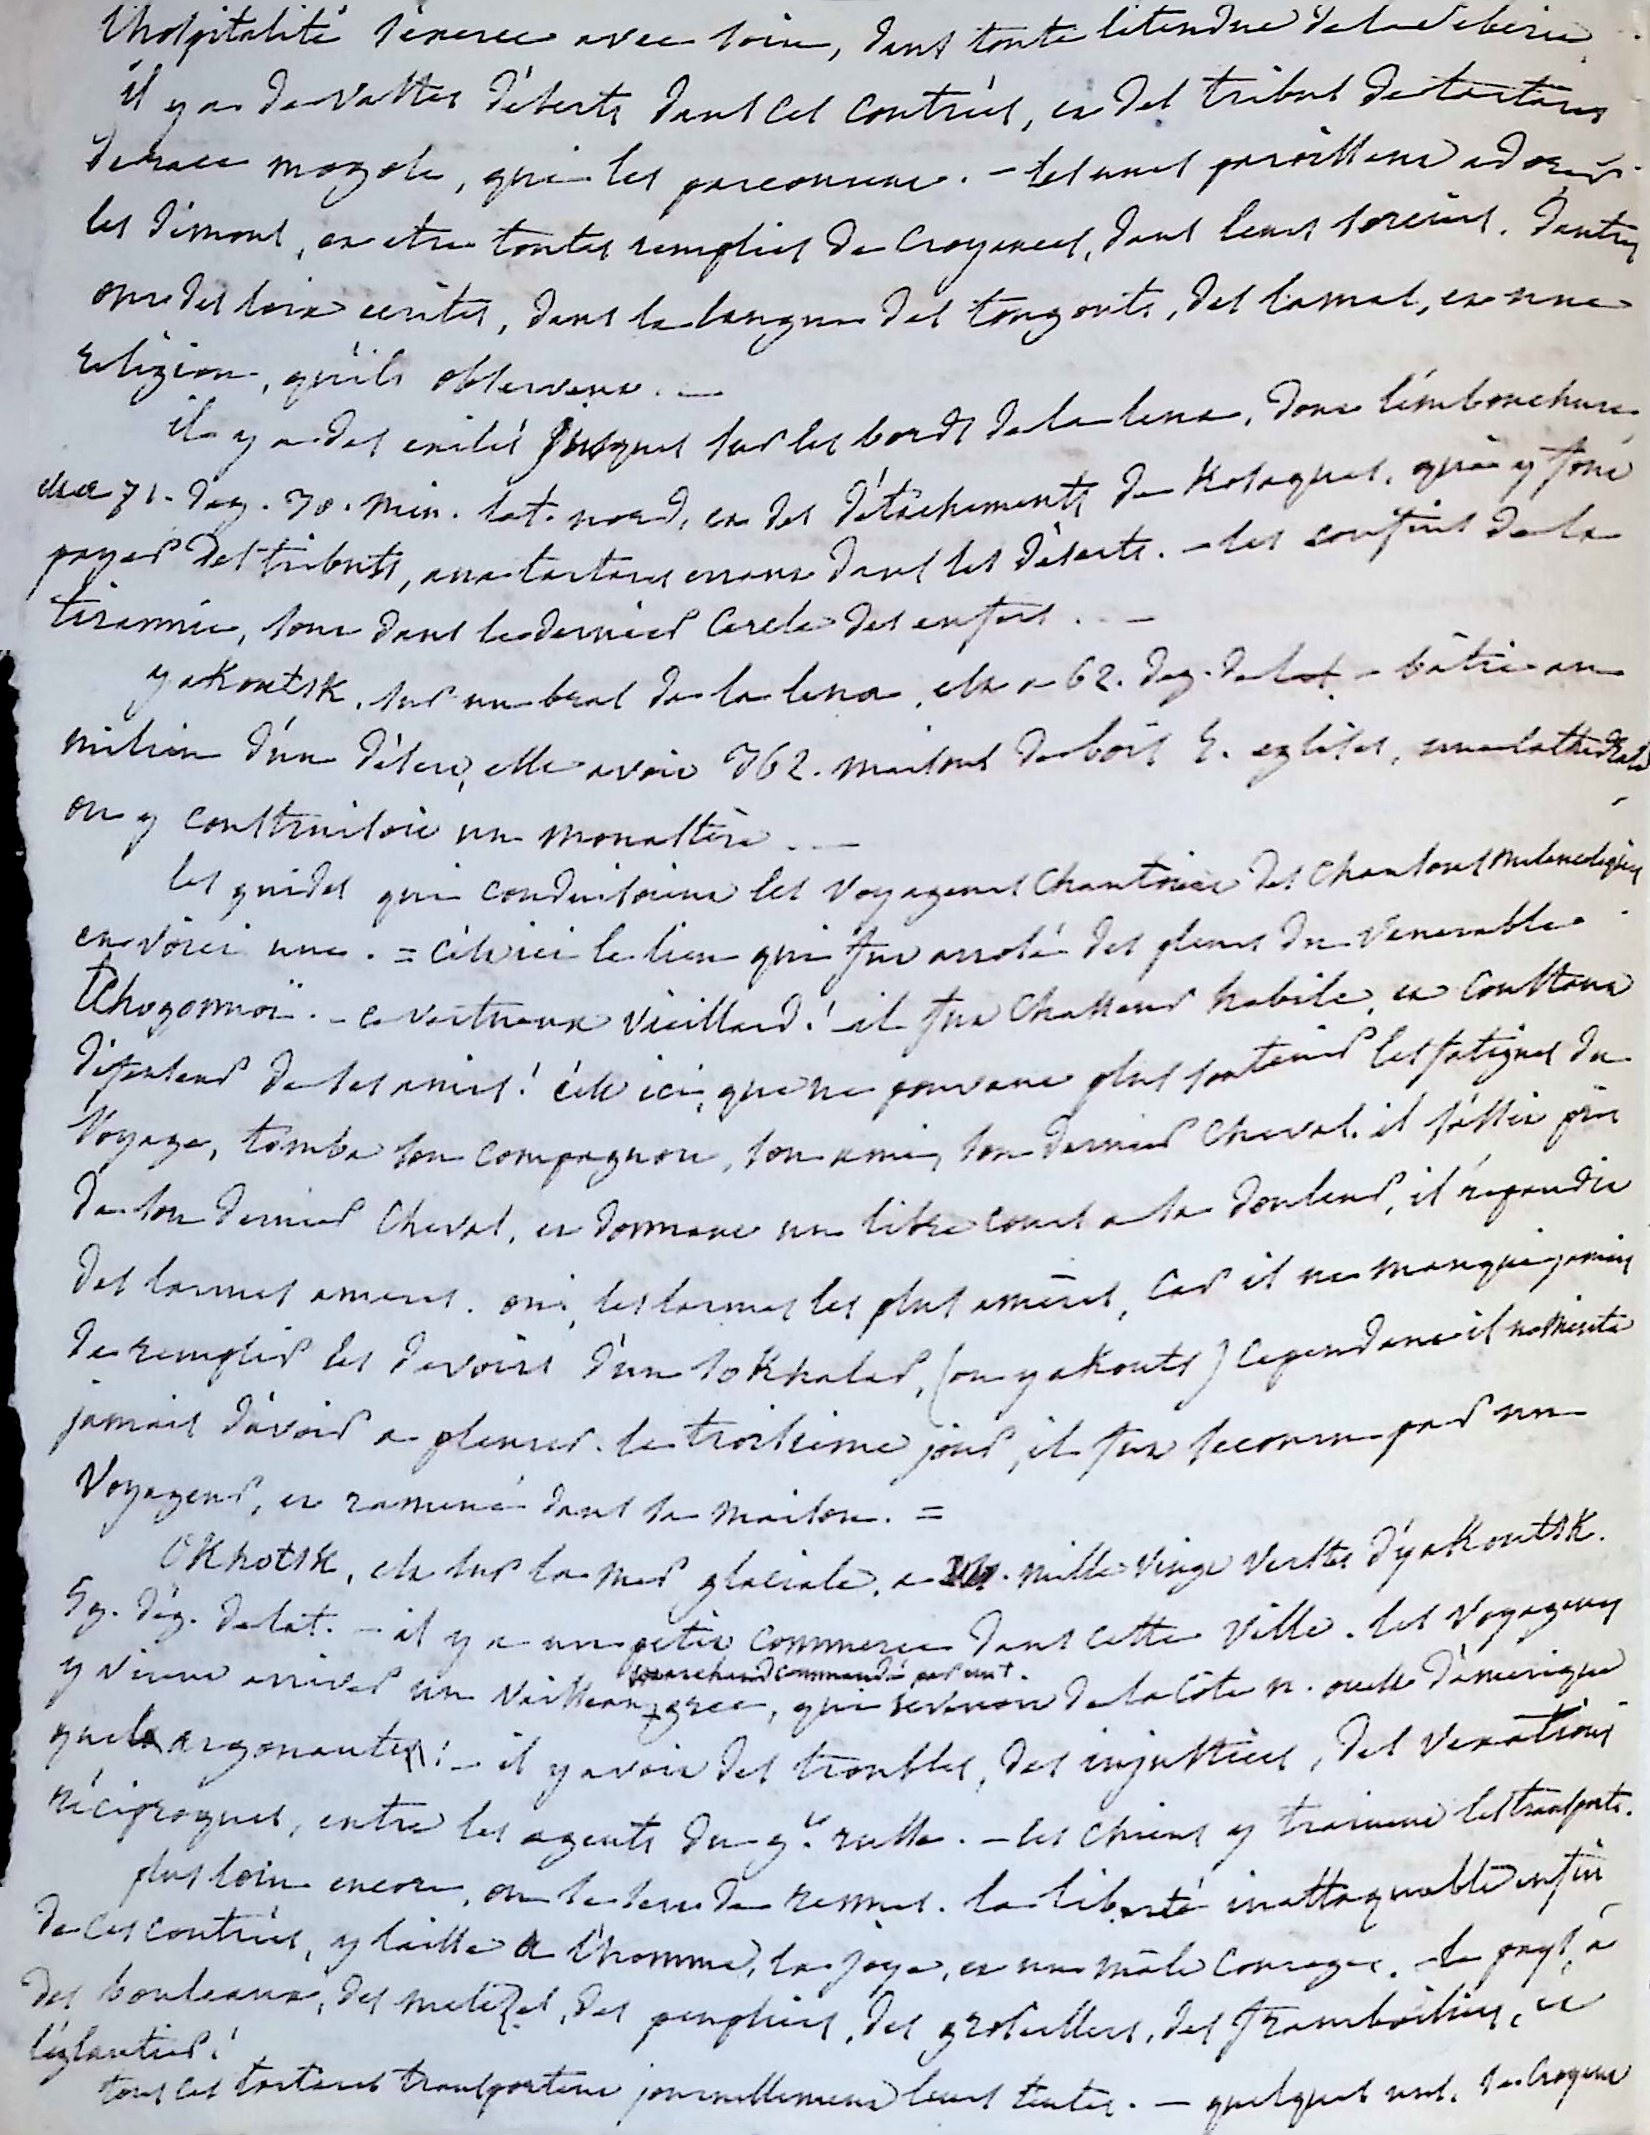 l'hospitalité s'exerce avec soin, dans toute l'étendue de la Sibérie.
il y a de vastes déserts dans ces contrées, et des tribus de tartares
de race mogole, qui les parcourent. - les unes paroissent adorer
les démons, et etre toutes remplies de croyances, dans leurs sorciers. d'autres
ont des loix ecrites, dans la langue des tongouts, des lamas, et une
religion, qu'ils observent. —
il y a des exilés jusques sur les bords de la lena, dont l'embouchure
est a 71. deg. 30. min. lat. nord, et des détachements de Kosaques, qui y font
payer des tributs, aux tartares errans dans les déserts. - les confins de la
tirannie, sont dans le dernier cercle des enfers. . —
yakoutsk, sur un bras de la lena, est a 62. deg. de lat - bâtie au
milieu d'un désert, elle avoit 362. maisons de bois 5. eglises, une cathédrale
on y construisoit un monastère . —
les guides qui conduisoient les voyageurs chantoient des chansons melancoliques
en voici une. = c'est ici le lieu qui fut arrosé des pleurs du venerable
Tchogonnoï. - ce vertueux vieillard! il fut chasseur habile, et constant
défenseur de ses amis! c'est ici, que ne pouvant plus soutenir les fatigues du
voyage, tomba son compagnon, son ami, son dernier cheval. il s'assit près
de son dernier cheval, et donnant un libre cours a sa douleur, il répandit
des larmes ameres. oui, les larmes les plus amères, car il ne manqua jamais
de remplir les devoirs d'un sokhalar, (ou yakouts) cependant il ne mérita
jamais d'avoir a pleurer. le troisième jour, il fut secouru par un
voyageur, et ramené dans sa maison. =
Okhotsk, est sur la mer glaciale, a mille vingt verstes d'yakoutsk.
59. dég. de lat. - il y a un petit commerce dans cette ville. les voyageurs
marchand commandé par un t.
y virent arriver un vaisseau grec, qui revenoit de la côte n. ouest d'amerique
quels argonautes! - il y avoit des troubles, des injustices, des vexations
réciproques, entre les agents du g.t russe. - les chiens y trainent les transports.
plus loin encore, on se sert de rennes. la liberté inattaquable enfin
de ces contrées, y laisse a l'homme, la joye, et un mâle courage. - le pays, a
des bouleaux, des melezes, des peupliers, des groseillers, des framboisiers, et
l'églantier!
tous ces tartares transportent journellement leurs tentes. - quelques uns, se croyent